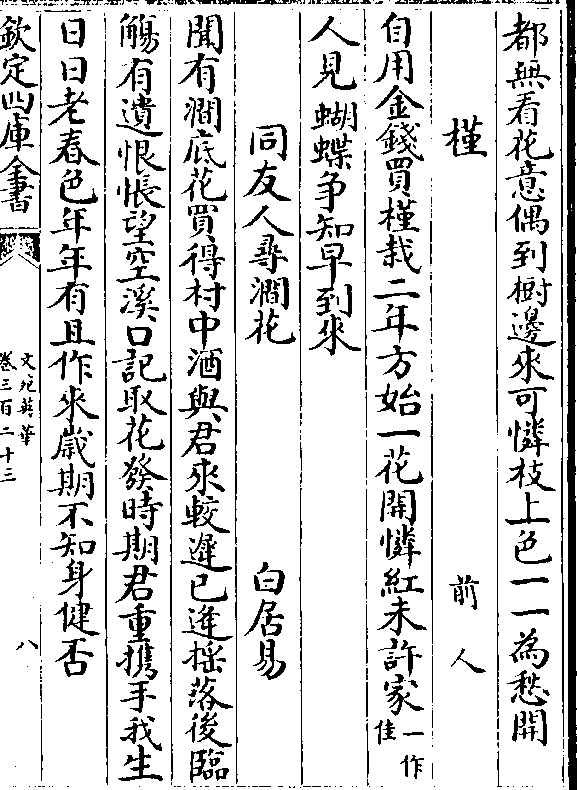 都無看花意偶到樹邊來可憐枝上色一一為愁開
槿　前人
自用金錢買槿栽二年方始一花開憐紅未許家一作佳
人見蝴蝶争知早到來
同友人尋澗花　白居易
聞有澗底花買得村中酒與君來較遲已逢揺落後臨
觴有遺恨悵望空溪口記取花發時期君重携手我生
日日老春色年年有且作來嵗期不知身健否
欽定四庫全書
文苑英華
卷三百二十三
八